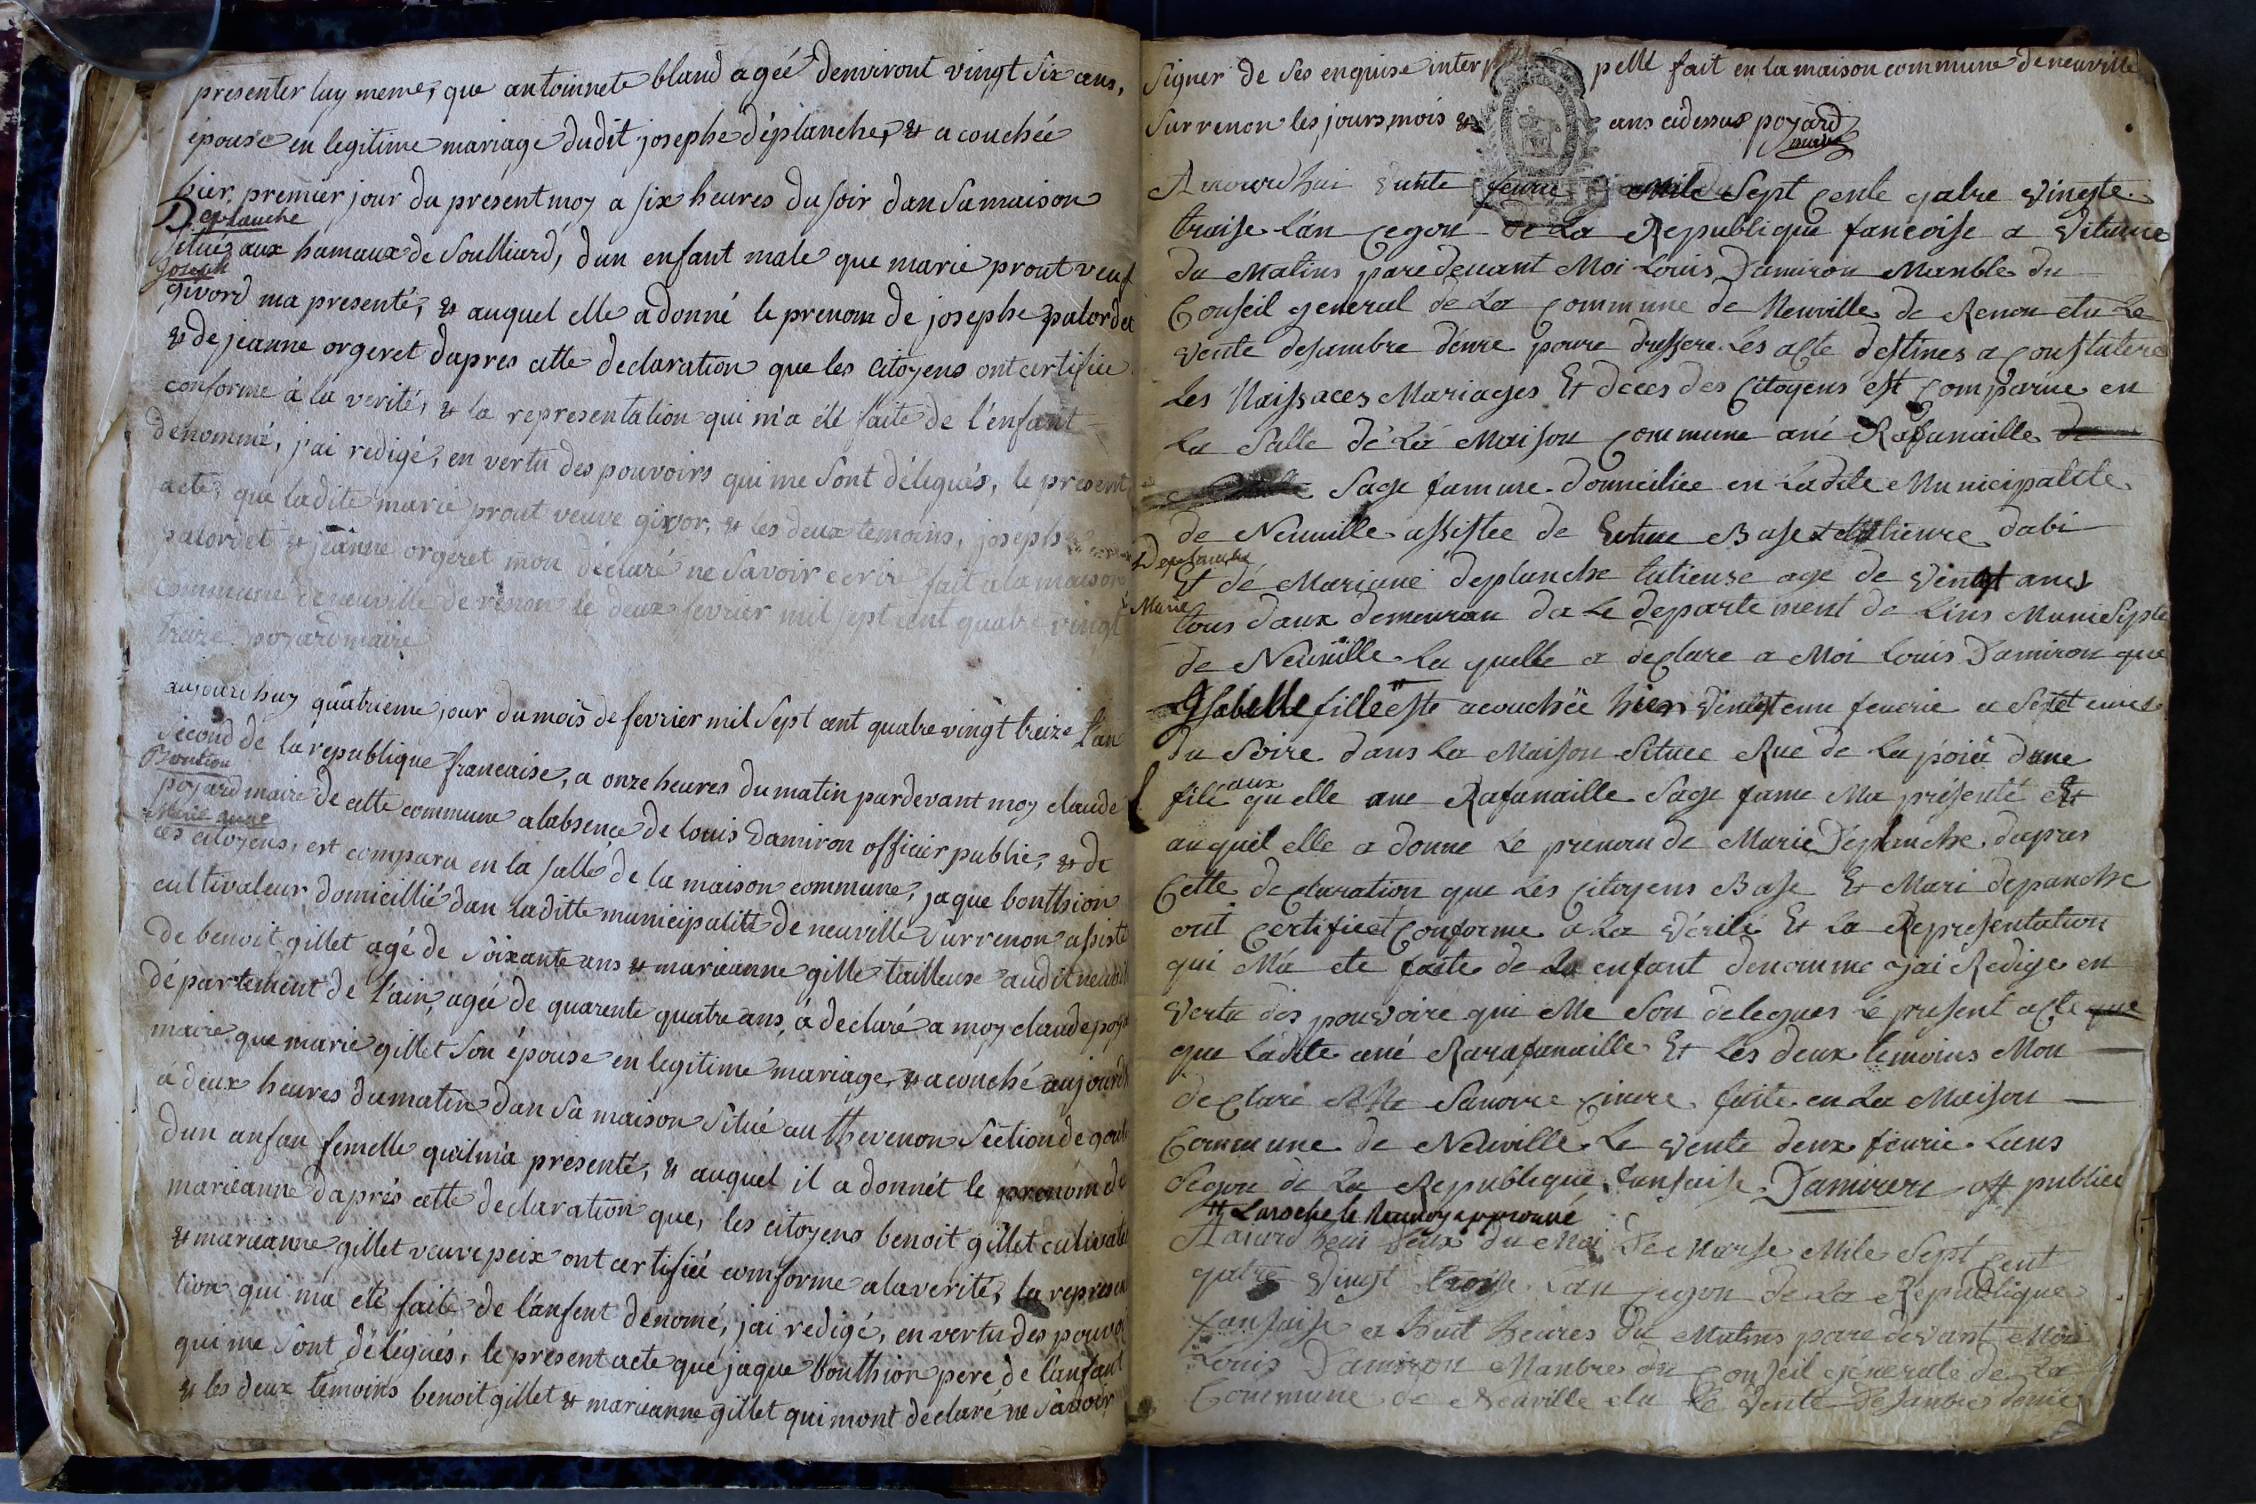 presenter luy meme, que antoinnete bland agée denviront vingt six ans,
épouse en legitime mariage dudit josephe déplanche, & a couchée
hier, premier jour du present moy a six heures du soir dan sa maison
Deplanche
situé aux hamaux de Soulliard, dun enfant male que marie prout veuf
Joseph
givord ma presenté, & auquel elle a donné le prenom de josephe palordet
& de jeanne orgeret dapres cette declaration que les citoyens ont certifiée
conforme à la verité, & la representation qui m'a été faite de l'enfant
denommé, j'ai redigé, en vertu des pouvoirs qui me sont délegués, le present
acte, que ladite marie prout veuve givor, & les deux temoins, joseph
palordet & jeanne orgeret mon déclaré ne savoir ecrire fait a la maison
commune de neuville de renon le deux fevrier mil sept cent quatre vingt
treize poyard maire
aujourdhuy quatrieme jour du mois de fevrier mil sept cent quatre vingt treize l'an
second de la republique francaise, a onze heures du matin pardevant moy claude
Bontion
poyard maire de cette commune alabsence de louis Damiron officier public, & de
Marie anne
ces citoyens, est comparu en la salle de la maison commune, jaque bonthion
cultivateur domicillié dan laditte municipalité de neuville sur renon assisté
de benoit gillet agé de soixante ans & marieanne gille tailleuse audit neuvil
département de l'ain, agée de quarente quatre ans, à declaré a moy claude poya
maire que marie gillet son épouse en legitime mariage, & acouché aujourdh
à deux heures du matin dan sa maison situé au thevenon section de
dun anfan femelle quil m'a presenté, & auquel il a donnét le prenom de
marieanne daprés cette declaration que, les citoyens benoit gillet cultivate
& marieanne gillet veuve peix ont certifiée comforme a la verité, la represen
tion qui ma eté faite de l'anfent denomé, j'ai redigé, en vertu des pouvoi
qui me sont délegués, le present acte que jaque bonthion pere de l'anfant
& les deux temoins benoit gillet & marieanne gillet qui mont declaré ne savoir
signer de ses enquise inter pellé fait en la maison commune de neuville
sur renon les jours, mois & ans cidessus poyard
maire
Aujourdhui vente feurie Mile Sept cente qatre vingte
traise l'an cegon de La Republique fancoise a
du Matins pare devant Moi Louis Damiron Manble du
Conseil general de La commune de Neuville de Renon elu Le
vente desambre dénre poure dressere Les acte destines a constatere
Les Naissaces Mariages Et deces des Citoyens est Comparue en
La Salle dé La Maison commune ané Rafanaille
Sage famme domiciliee en Ladite Municipalité
de Neuville assistee de Base dabi
Deplanche
Et dé Mariané deplanche talieuse age de vingt ans
Marie
tous daux demeuran da Le departement de Lins Munisipte
de Neuville La quelle a declare a Moi Louis Damiron que
Isabelle fille este acouchée hier vingtenn feurie a Septt eures
du Soire dans La Maison Situee Rue de La poia dune
filé aux quelle ane Rafanaille Sage fame Ma présenté et
auquel elle a donne Le prenon de Marie Deplanche dapres
Cette declaration que Les Citoyens Base Et Mari depanche
ont certifieet conforme a La vérité Et La Representation
qui Má ete faite de enfant denomme jai Redige en
vertu dés pouvoire qui Me Son delegues Lé present acte que
que Ladite ané Rarafanaille Et Les deux temoins Mon
declare Ne Savoire faite en La Maison
Commune de Neuville Le vente deux feurie Lans
Segon de La Republique fansaise Damiron off publiee
Laroche le approuvé
Aujourdhui deux du Moi de Marse Mile Sept cent
qatre vingt traise Lan cegon de La Republique
fansaise a huit heures du Matins pare devant Moi
Louis Damiron Manbre du Conseil génerale de La
Commune de Neuville elu Le vente desanbre